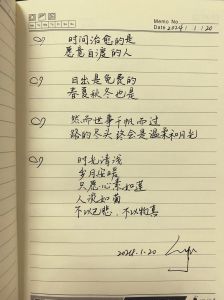 Memo No.
Date 2024 / 1 / 20
时间治愈的是
愿意自渡的人
日出是免费的
春夏秋冬也是
然而世事千帆而过
路的尽头终会是温柔和月光
时光清浅
岁月安暖
只愿心素如莲
人淡如菊
不以己悲，不以物喜
2024.1.20